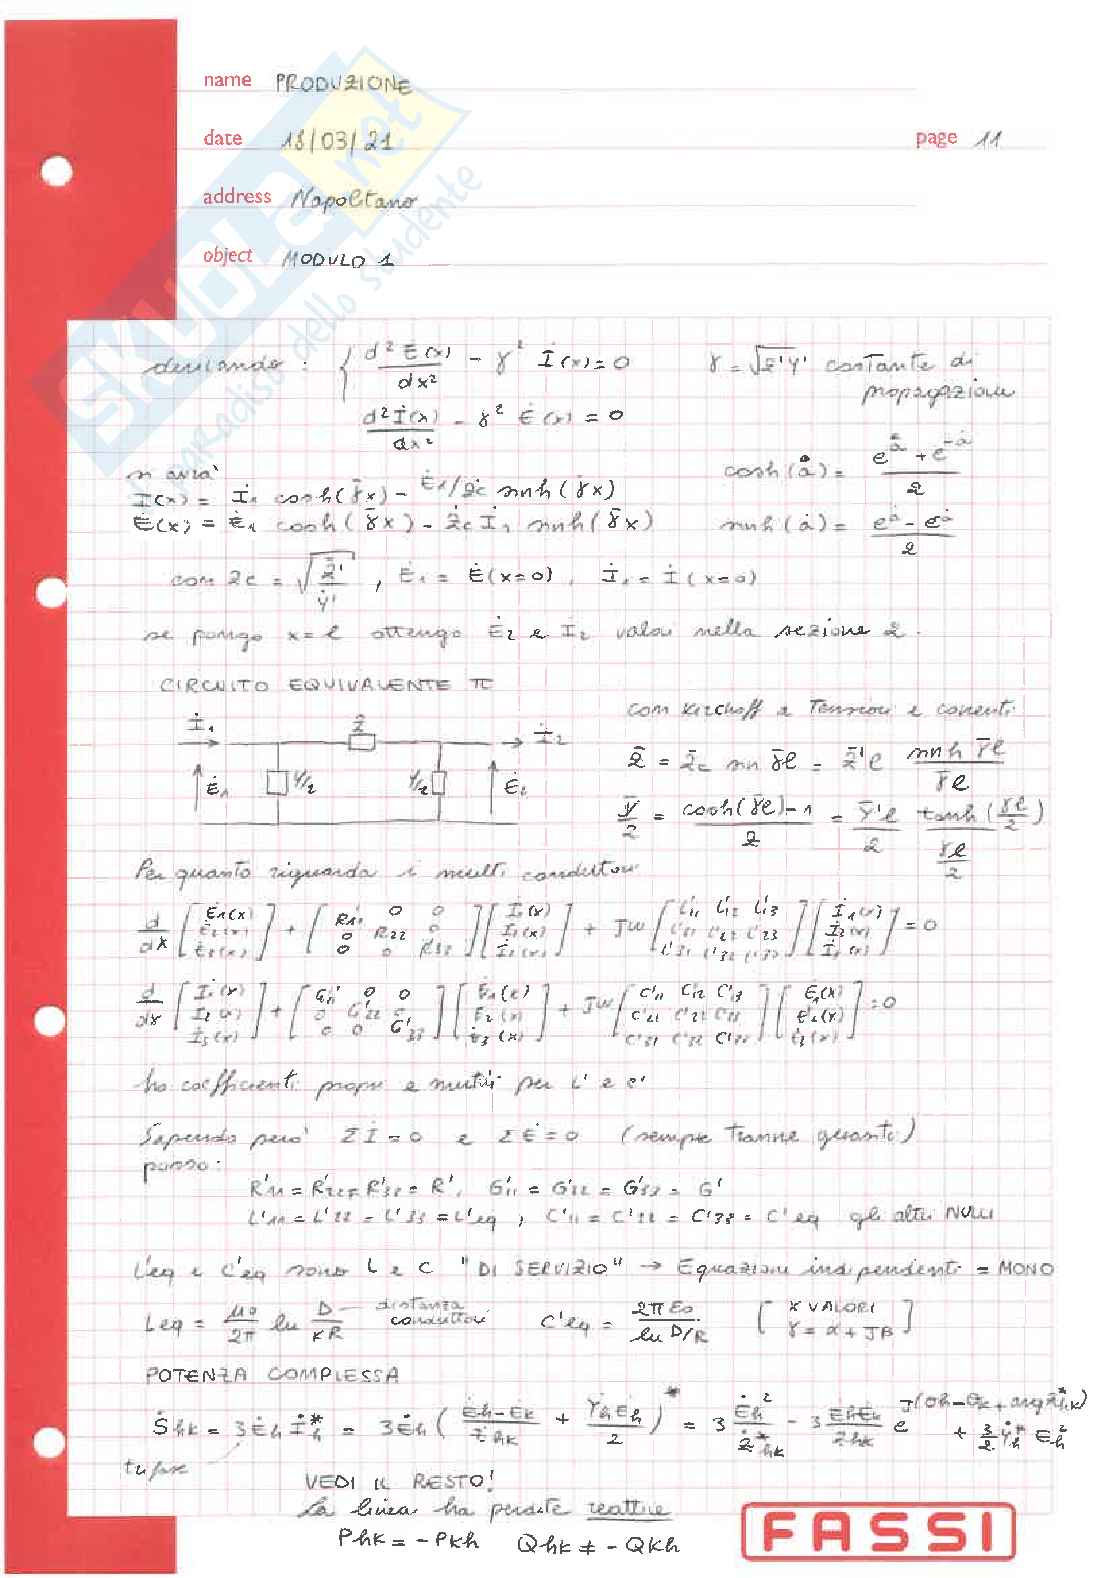 name PRODUZIONE
date 18/03/21 page 11
address Napolitano
object MODULO 1
SKUOLA.net
paradiso dello studente
derivando : { d² Ė(x)/dx² - γ² İ(x) = 0 γ = √z'y' costante di propagazione
d² İ(x)/dx² - γ² Ė(x) = 0
si avrà cosh(ȧ) = (e^ȧ + e^-ȧ)/2
I(x) = İ₁ cosh(γ̄x) - Ė₁/żc sinh(γx)
Ė(x) = Ė₁ cosh(γ̄x) - żc İ₁ sinh(γ̄x) sinh(ȧ) = (e^ȧ - e^ȧ)/2
con Zc = √(z̄'/ẏ') , Ė₁ = Ė(x=0) , İ₁ = İ(x=0)
se pongo x = l ottengo Ė₂ e İ₂ valori nella sezione 2.
CIRCUITO EQUIVALENTE π
İ₁ Z̄ İ₂
Ė₁ Y/2 Y/2 Ė₂
con Kirchoff a Tensioni e correnti
Z̄ = Z̄c sin γ̄l = Z̄'l sinh γ̄l / γ̄l
ȳ/2 = (cosh(γ̄l) - 1)/Z = ȳ'l/2 tanh(γl/2) / (γl/2)
Per quanto riguarda i multi conduttori
d/dx [Ė₁(x) Ė₂(x) Ė₃(x)] + [R'₁₁ 0 0 0 R₂₂ 0 0 0 R₃₃] [İ₁(x) İ₂(x) İ₃(x)] + Jω [L'₁₁ L'₁₂ L'₁₃ L'₂₁ L'₂₂ L'₂₃ L'₃₁ L'₃₂ L'₃₃] [İ₁(x) İ₂(x) İ₃(x)] = 0
d/dx [İ₁(x) İ₂(x) İ₃(x)] + [G'₁₁ 0 0 0 G'₂₂ 0 0 0 G'₃₃] [Ė₁(x) Ė₂(x) Ė₃(x)] + Jω [C'₁₁ C'₁₂ C'₁₃ C'₂₁ C'₂₂ C'₂₃ C'₃₁ C'₃₂ C'₃₃] [Ė₁(x) Ė₂(x) Ė₃(x)] = 0
ho coefficienti propri e mutui per L' e c'
Sapendo però Σİ = 0 e ΣĖ = 0 (sempre tranne guasti)
posso:
R'₁₁ = R'₂₂ = R'₃₃ = R', G'₁₁ = G'₂₂ = G'₃₃ = G'
L'₁₁ = L'₂₂ = L'₃₃ = L'eq , C'₁₁ = C'₂₂ = C'₃₃ = C'eq gli altri NULLI
L'eq e C'eq sono L e C "DI SERVIZIO" → Equazioni indipendenti = MONO
Leq = μ₀/2π ln D/KR distanza conduttori C'eq = 2πε₀/ln D/R [ X VALORI γ = α + Jβ ]
POTENZA COMPLESSA
Ṡhk = 3Ėh İh* = 3Ėh ( (Ėh - Ėk)/Żhk + ẎhĖh/2 )* = 3 Ėh²/Ż*hk - 3 ĖhĖk/Zhk e^J(θh - θk + arg Z*hk) + 3/2 Ẏh* Eh²
trifase
VEDI IL RESTO!
La linea ha perdite reattive
Phk = -Pkh Qhk ≠ -Qkh
FASSI